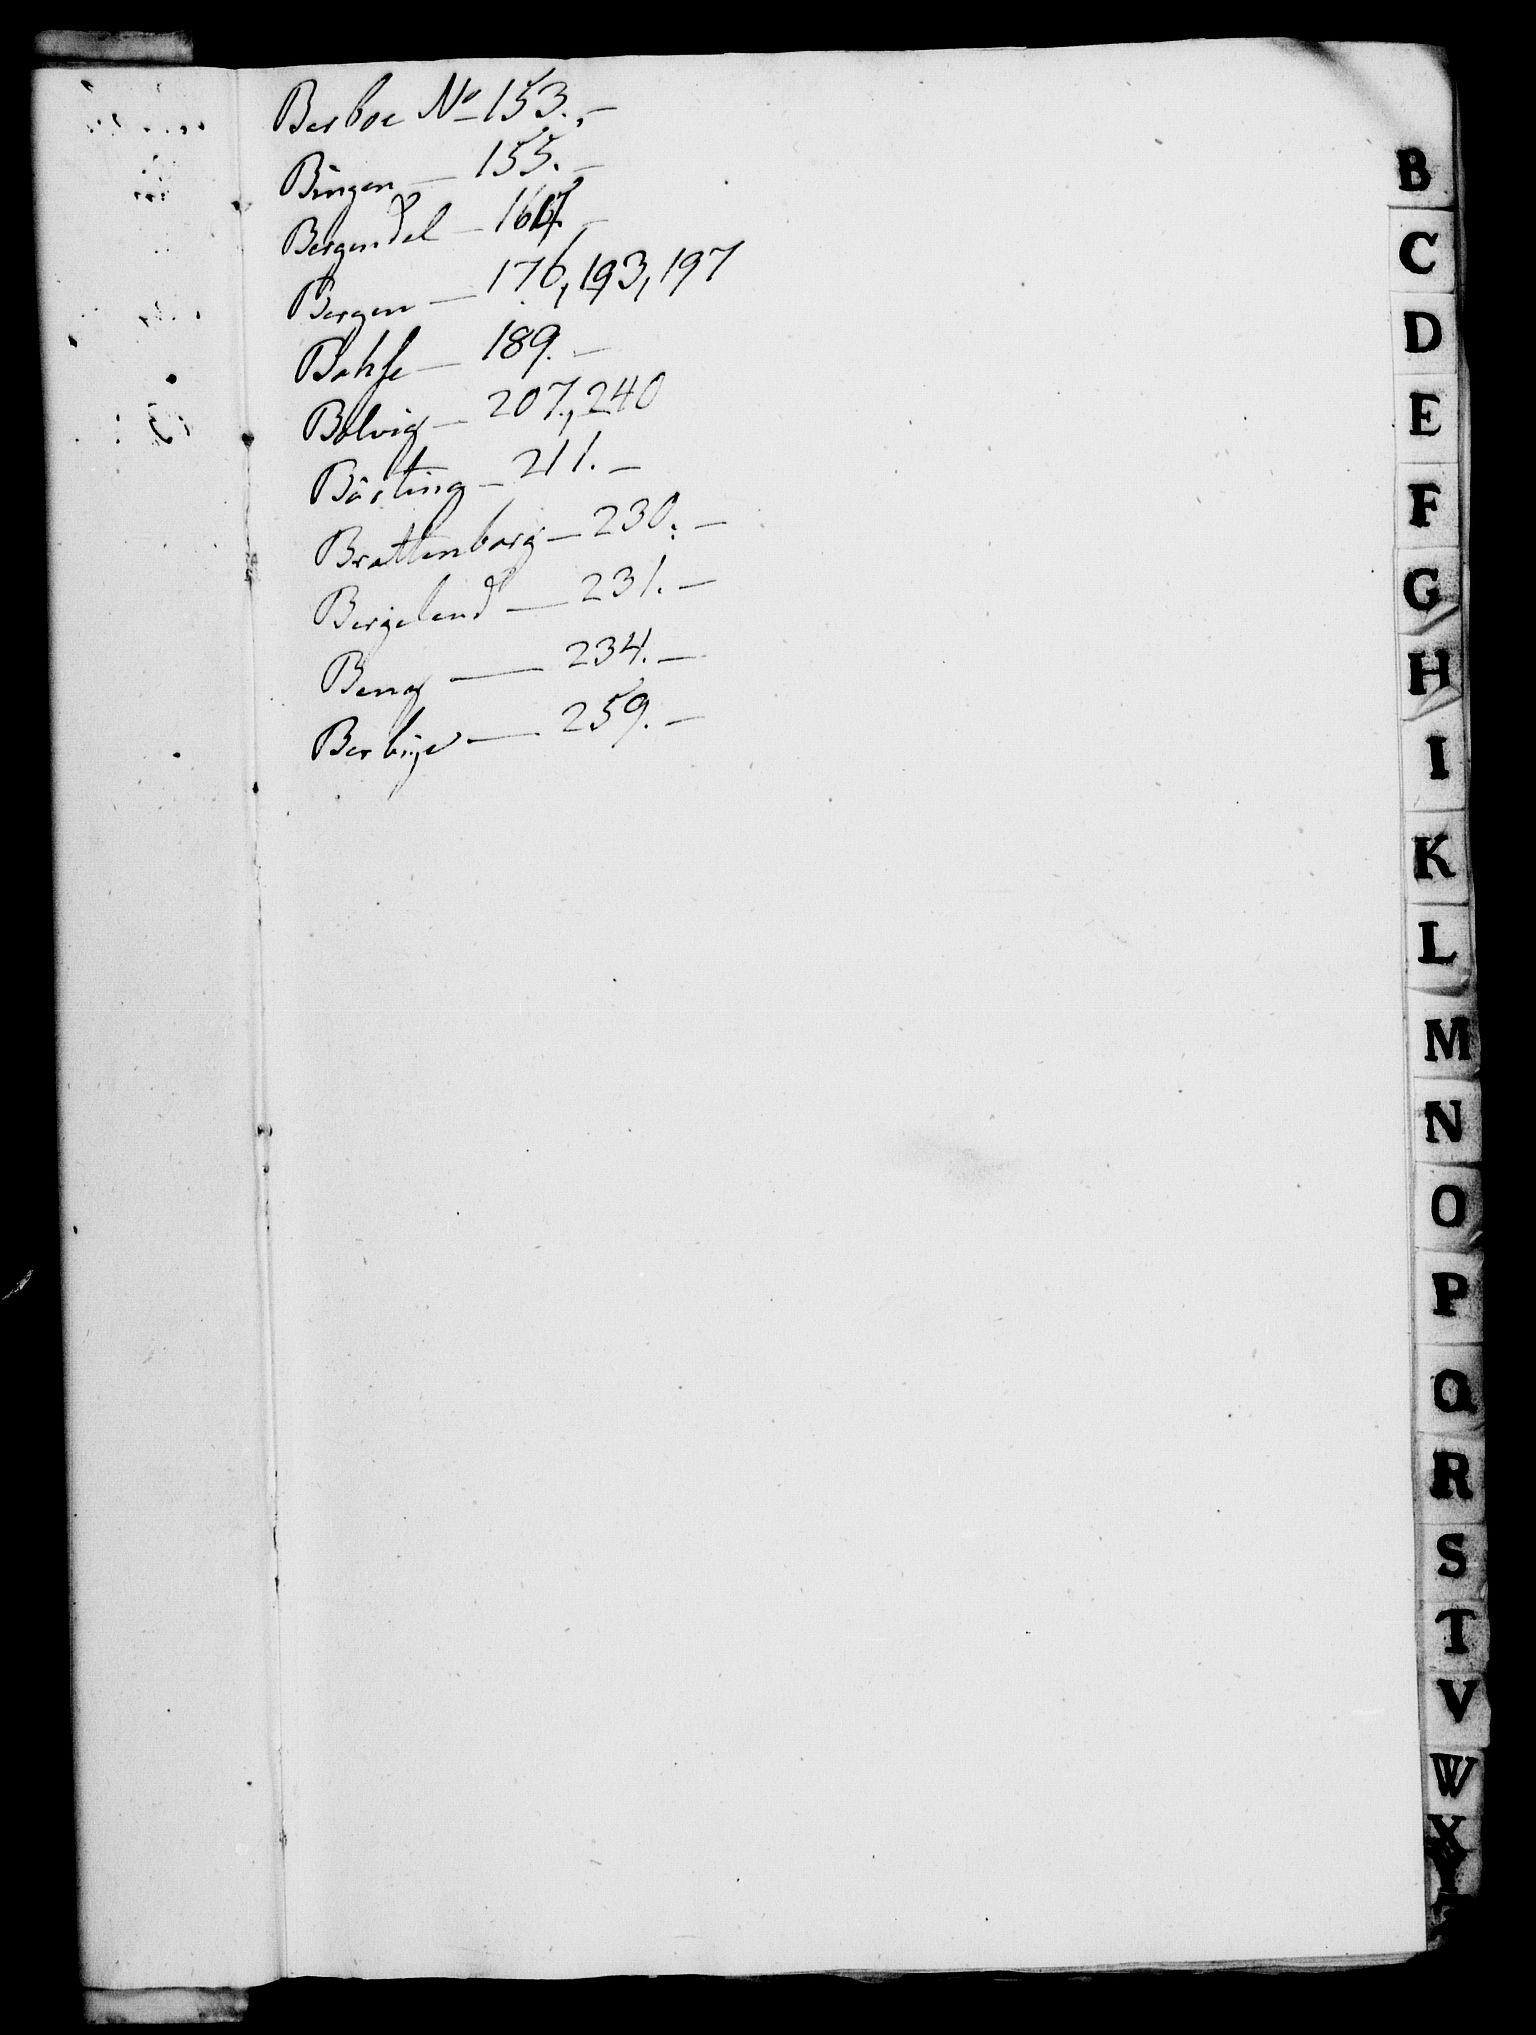 Berboe No 153.,—
Bingen — 155.—
Bergendel — 164 —
Bergen — 176, 193, 197
Bahse — 189.—
Bolvig — 207., 240
Bärting — 211.—
Brattenborg — 230.—
Bergeland — 231.—
Beng — 234.—
Berbije — 259.—
B
C
D
E
F
G
H
I
K
L
M
N
O
P
Q
R
S
T
V
W
X
Y